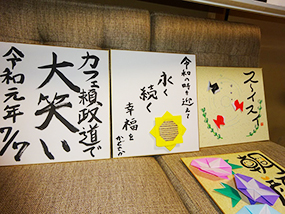 カフェ頼政道で
大笑い
令和元年7/7
令和の時を迎えて
永く
続く
幸福を
スーイスイ